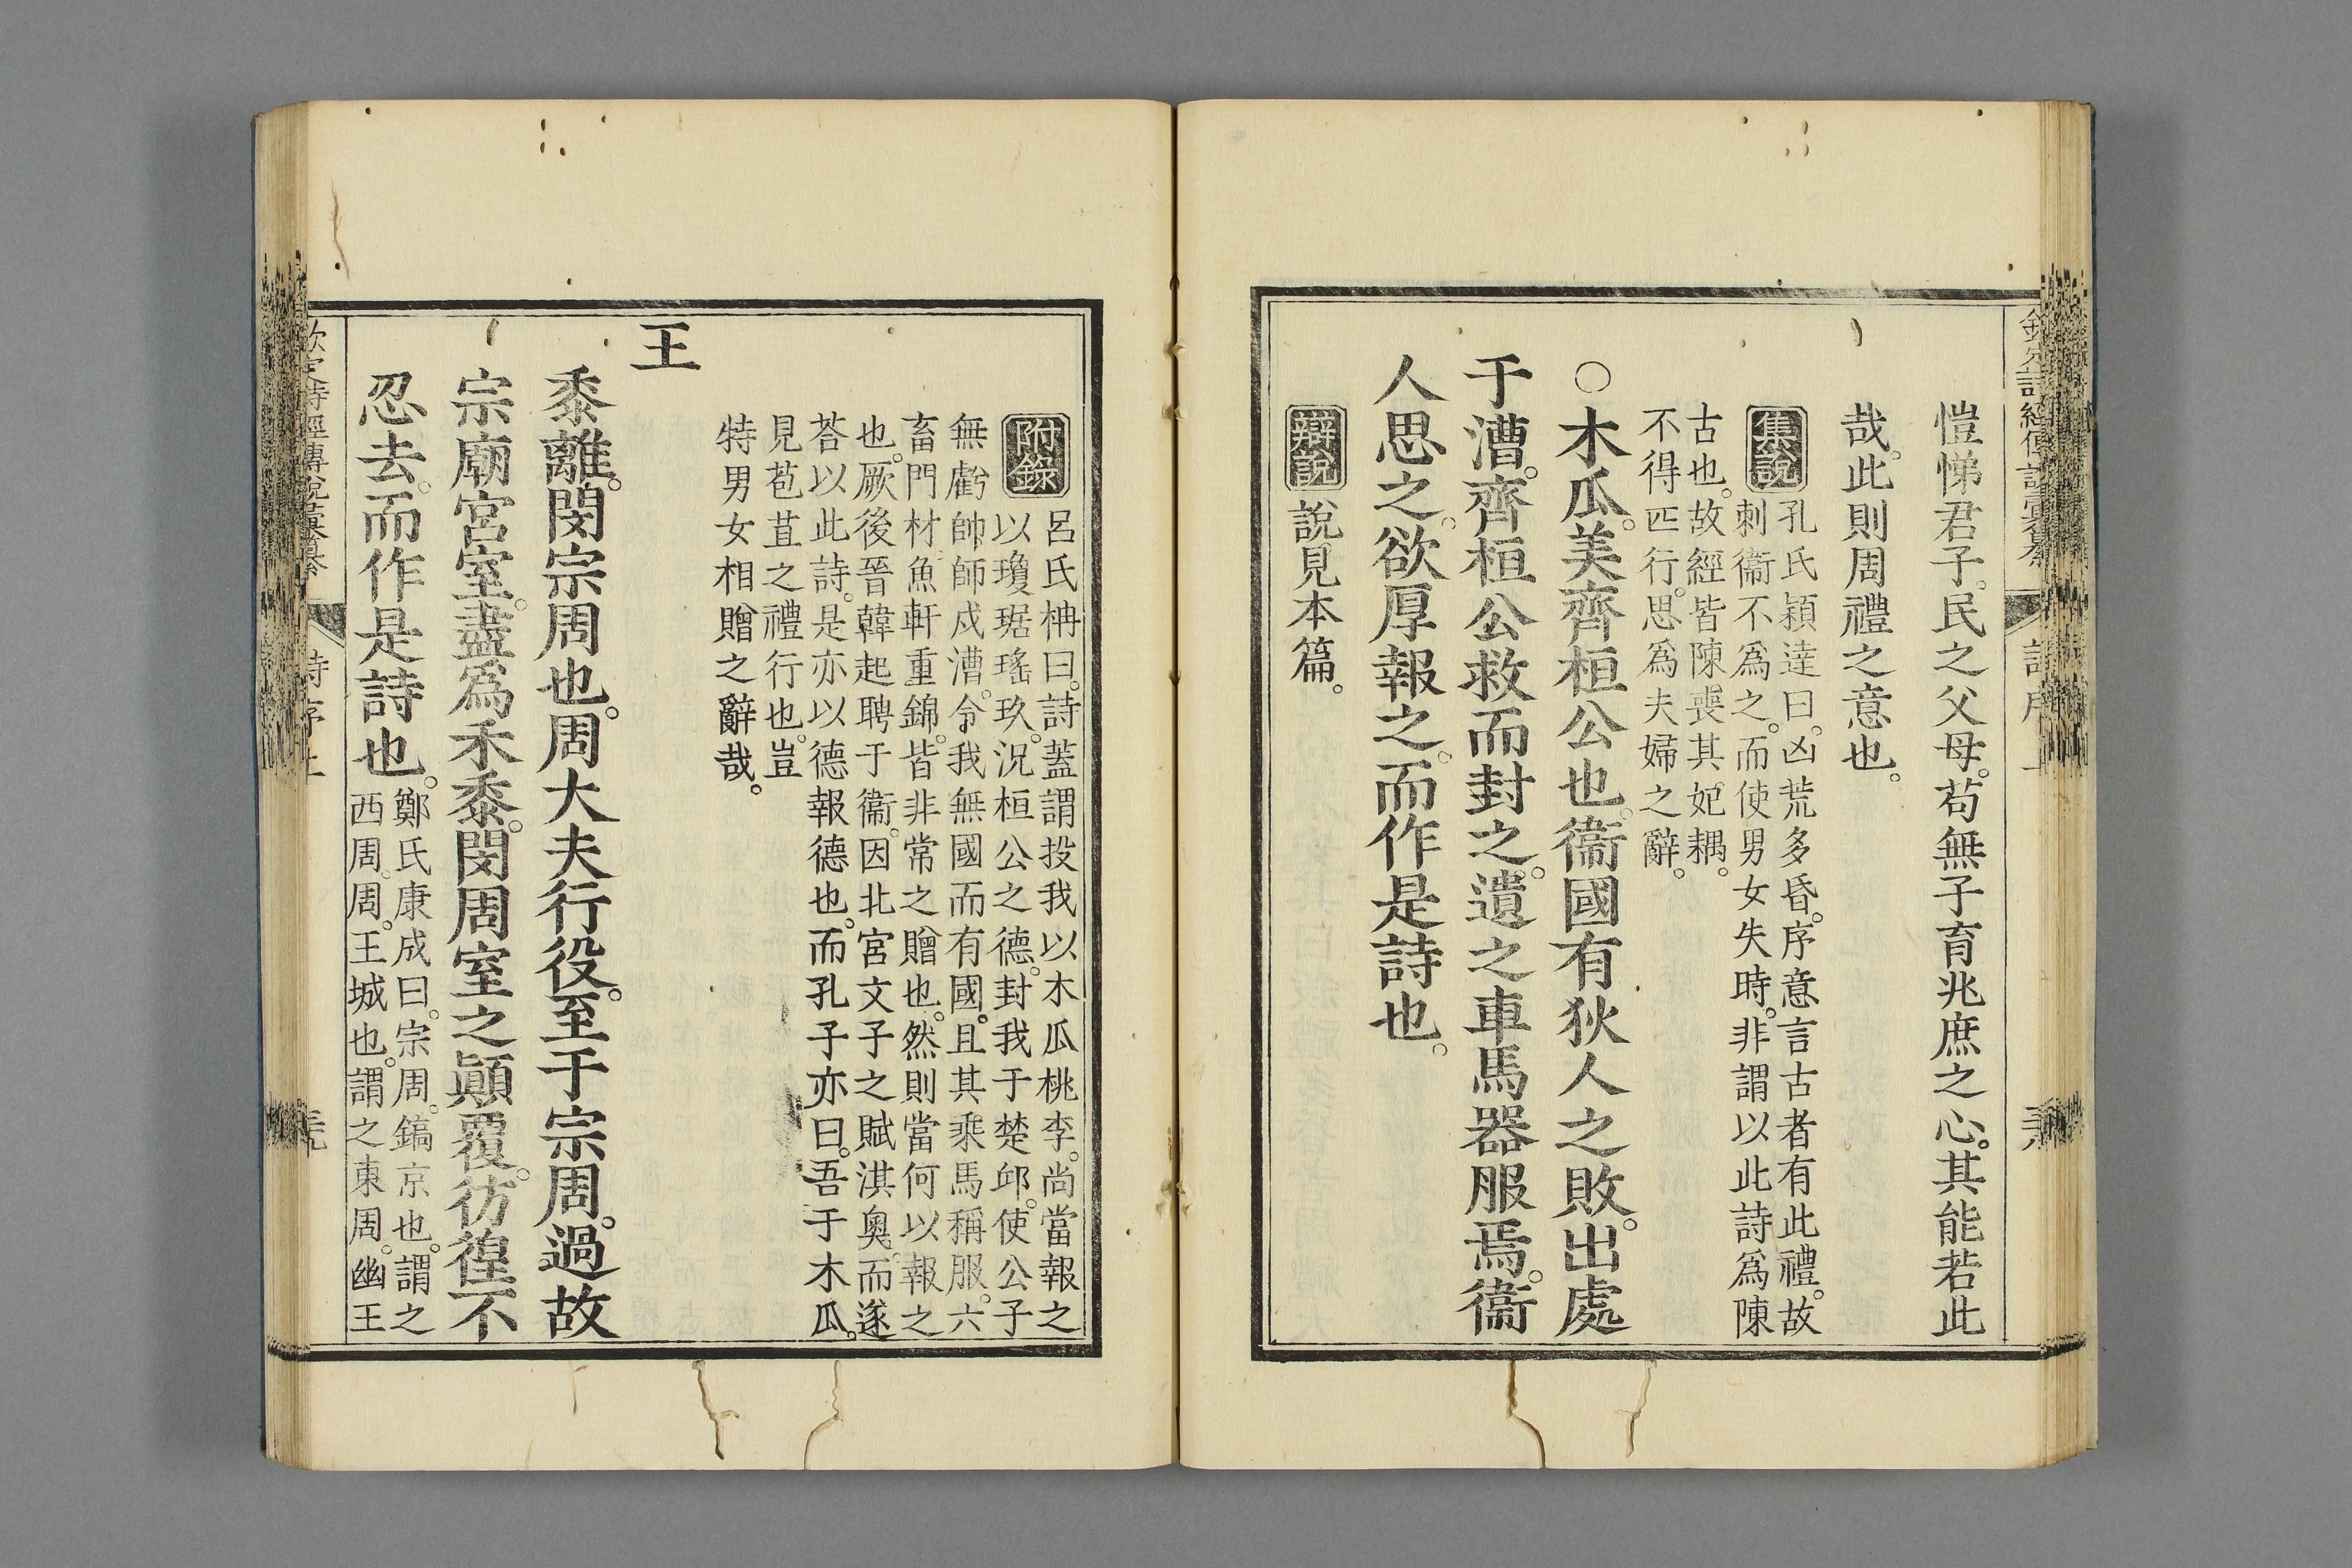 愷悌君子。民之父母。苟無子育兆庶之心。其能若此
哉。此則周禮之意也。
集說
孔氏穎達曰。凶荒多昏。序意言古者有此禮。故
刺衞不爲之。而使男女失時。非謂以此詩爲陳
古也。故經皆陳喪其妃耦。
不得匹行。思爲夫婦之辭。
○木瓜。美齊桓公也。衞國有狄人之敗。出處
于漕。齊桓公救而封之。遺之車馬器服焉。衞
人思之。欲厚報之。而作是詩也。
辯說
說見本篇。
附錄
呂氏柟曰。詩蓋謂投我以木瓜桃李。尚當報之
以瓊琚瑤玖。況桓公之德。封我于楚邱。使公子
無虧帥師戍漕。令我無國而有國。且其乘馬稱服。六
畜門材。魚軒重錦。皆非常之贈也。然則當何以報之
也。厥後晉韓起聘于衞。因北宮文子之賦淇奥。而遂
荅以此詩。是亦以德報德也。而孔子亦曰。吾于木瓜。
見苞苴之禮行也。豈
特男女相贈之辭哉。
王
黍離。閔宗周也。周大夫行役。至于宗周。過故
宗廟宮室。盡爲禾黍。閔周室之顚覆。彷徨不
忍去。而作是詩也。
鄭氏康成曰。宗周。鎬京也。謂之
西周。周。王城也。謂之東周。幽王
欽定詩經傳說彙纂
詩序上